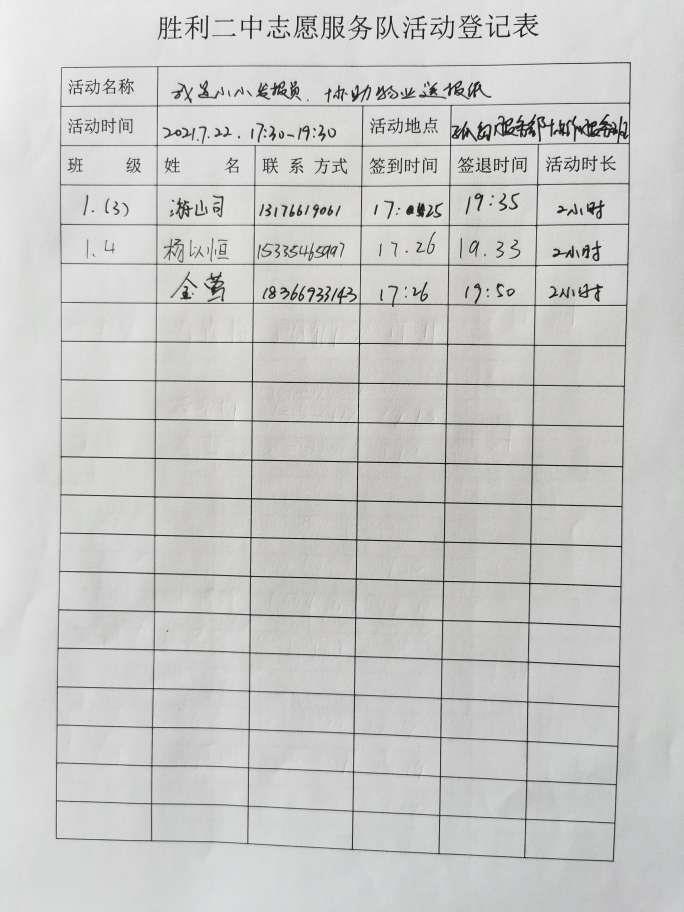 胜利二中志愿服务队活动登记表
活动名称 我是小小发报员、协助物业送报纸
活动时间 2021.7.22. 17:30-19:30 活动地点 服务部 服务班
班 级 姓 名 联系方式 签到时间 签退时间 活动时长
1.(3) 游山司 13176619061 17:25 19:35 2小时
1.4 杨以恒 15335465997 17.26 19.33 2小时
金莺 18366933143 17:26 19:50 2小时